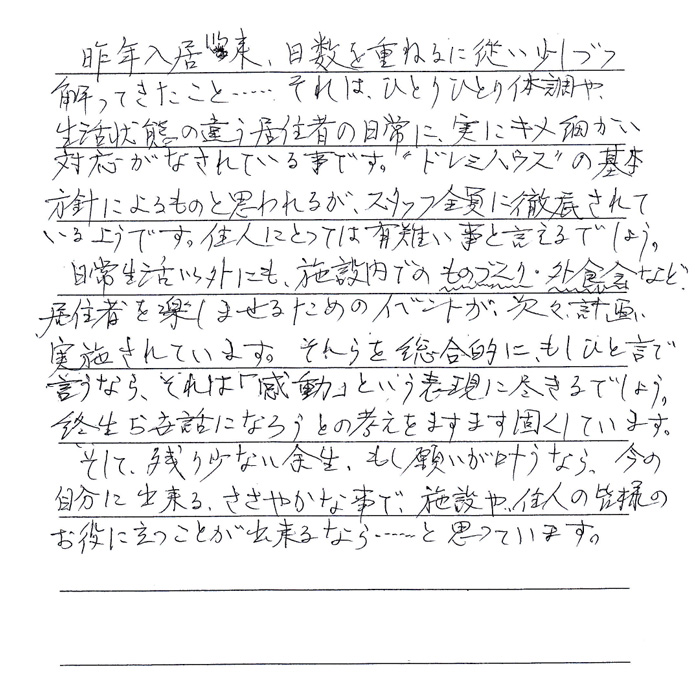 昨年入居以来、日数を重ねるに従い少しづつ
解ってきたこと……それは、ひとりひとり体調や、
生活状態の違う居住者の日常に、実にキメ細かい
対応がなされている事です。“ドレミハウス”の基本
方針によるものと思われるが、スタッフ全員に徹底されて
いるようです。住人にとっては有難い事と言えるでしょう。
日常生活以外にも、施設内でのものづくり・外食会など、
居住者を楽しませるためのイベントが、次々、計画、
実施されています。それらを総合的に、もしひと言で
言うなら、それは「感動」という表現に尽きるでしょう。
終生お世話になろうとの考えをますます固くしています。
そして、残り少ない余生、もし願いが叶うなら、今の
自分に出来る、ささやかな事で、施設や、住人の皆様の
お役に立つことが出来るなら……と思っています。